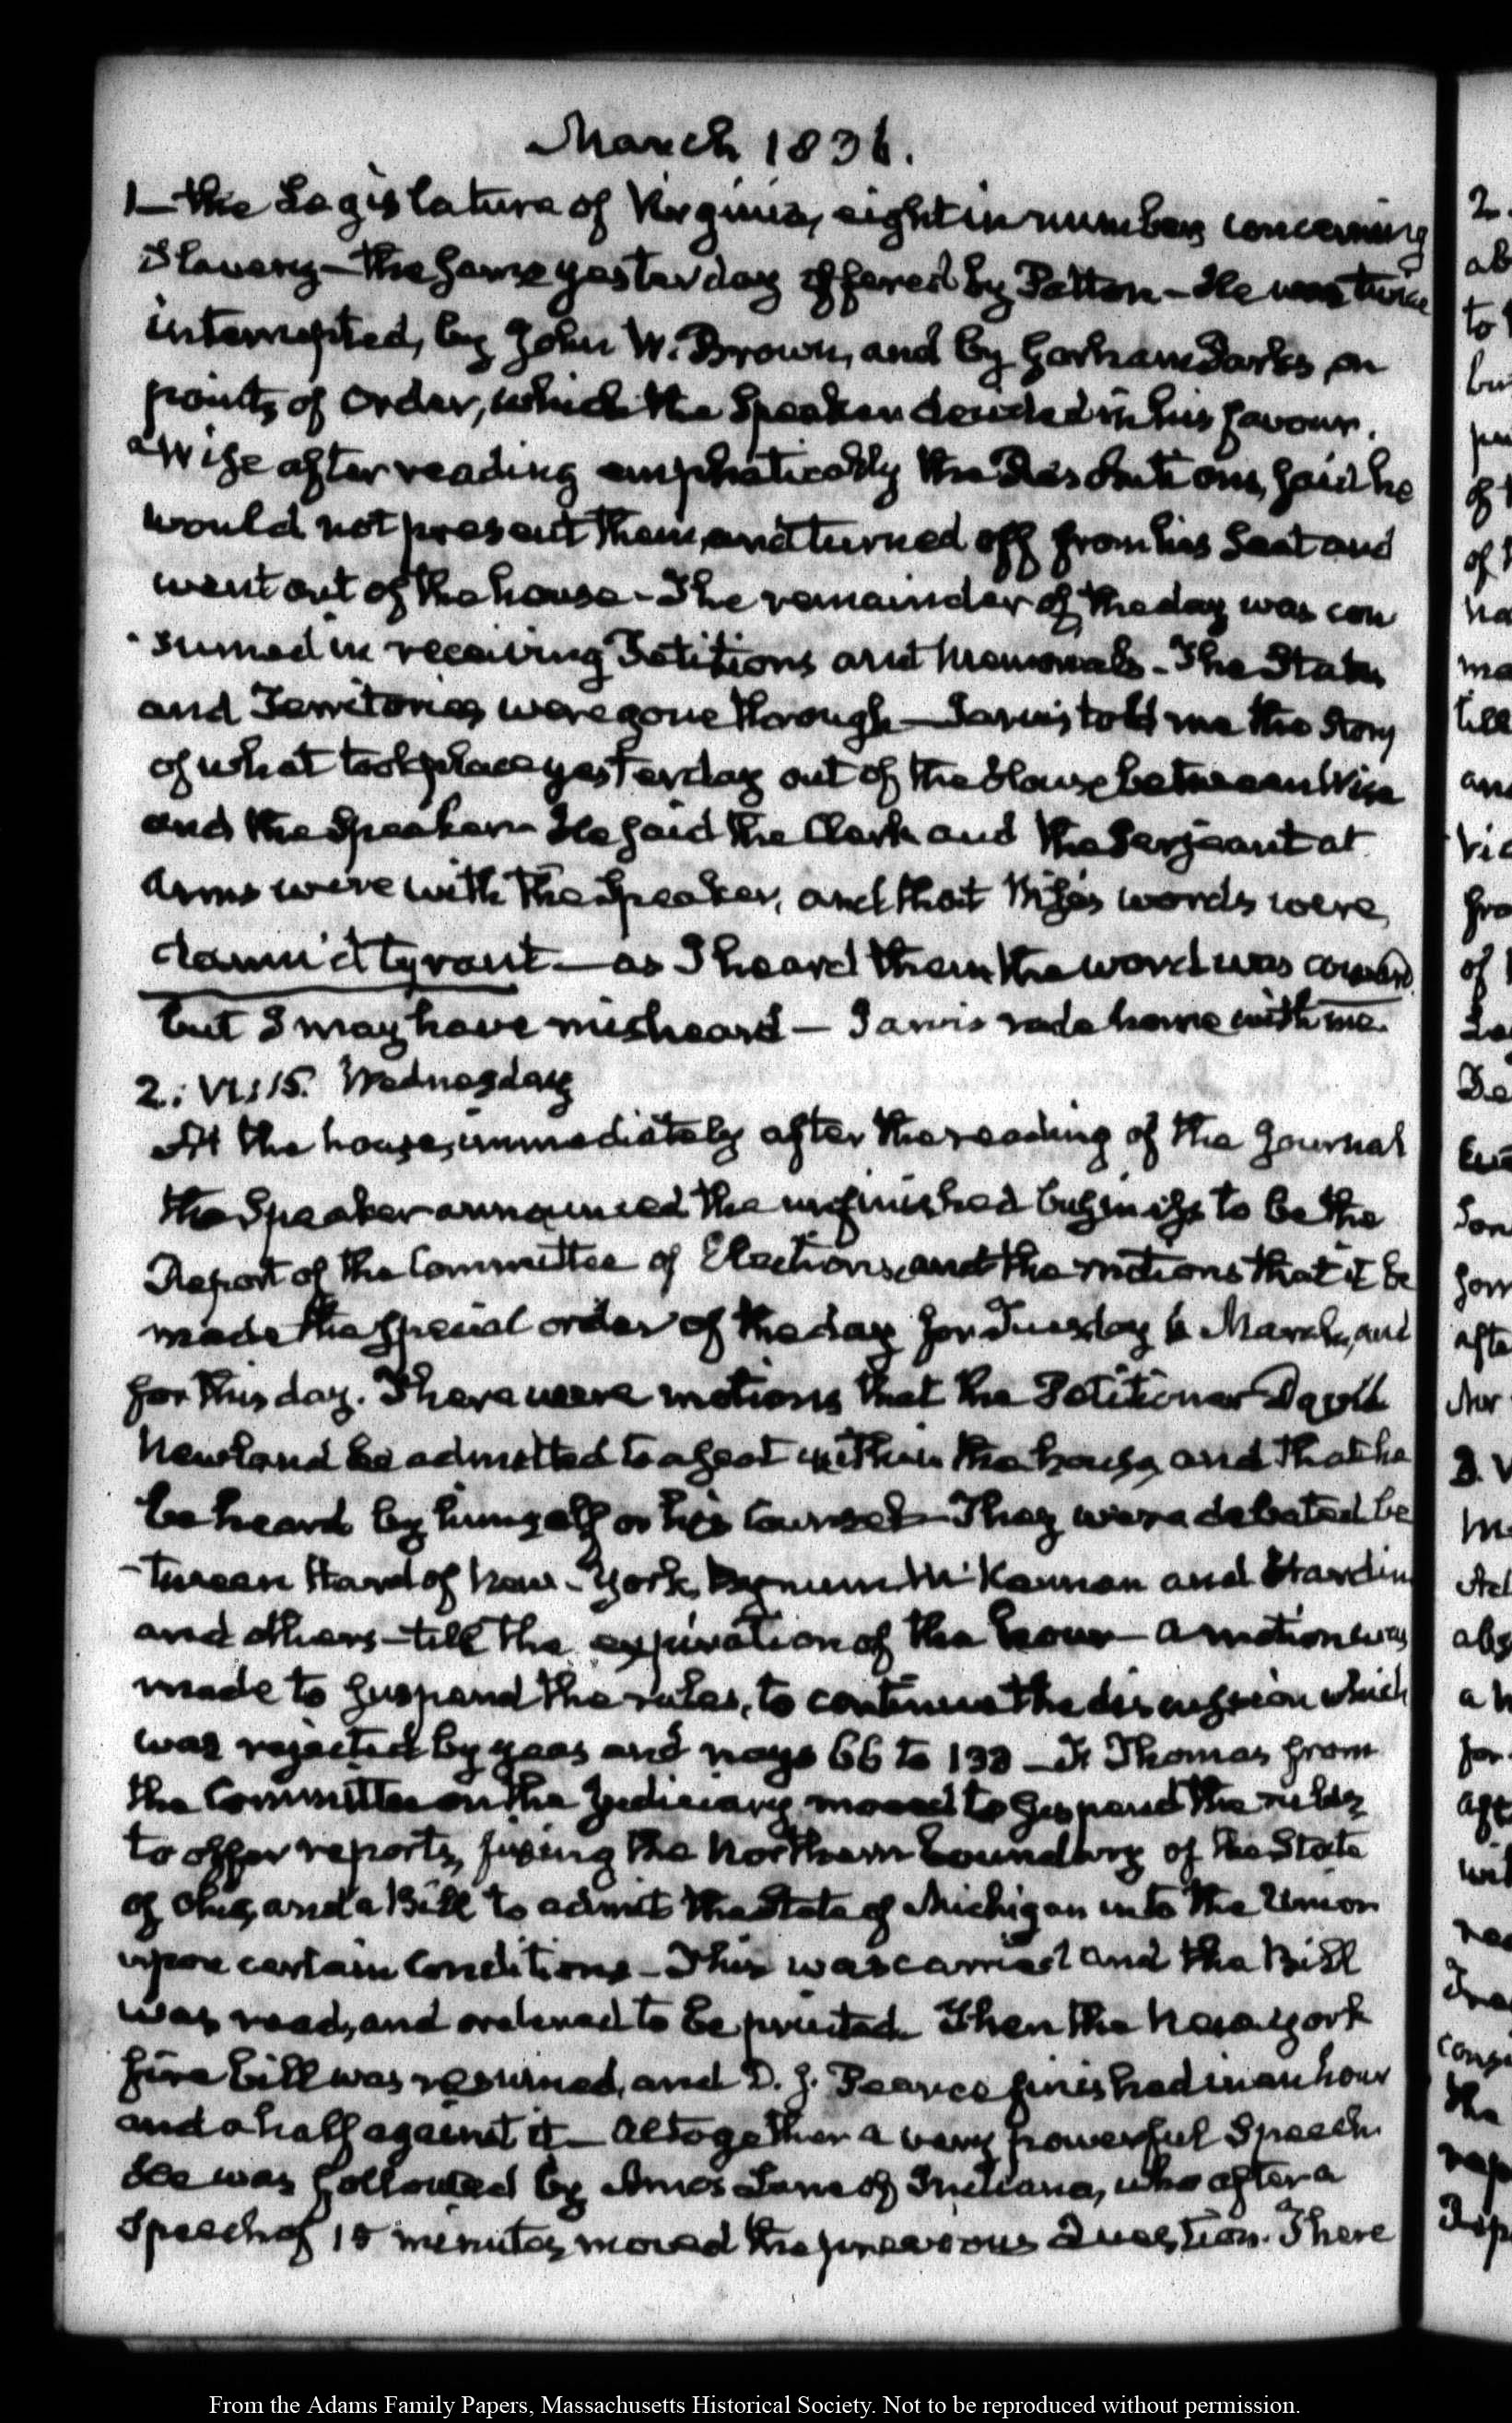 March 1836.
1— the Legislature of Virginia, eight in number, concerning
Slavery— the same yesterday offered by Patton— He was twice
interrupted, by John W. Brown, and by Gorham Parks, on
points of order, which the Speaker decided in his favour.
Wise after reading emphatically the Resolutions, said he
would not present them, and turned off from his Seat and
went out of the house— The remainder of the day was con
sumed in receiving Petitions and Memorials— The States
and Territories were gone through— Jarvis told me the Story
of what took place yesterday out of the House between Wise
and the Speaker— He said the Clerk and the Serjeant at
Arms were with the Speaker, and that Wise's words were,
damn'd tyrant— as I heard them the word was coward
but I may have misheard— Jarvis rode home with me.
2. VI:15. Wednesday
At the house, immediately after the reading of the Journal
the Speaker announced the unfinished business to be the
Report of the Committee of Elections, and the motions that it be
made the special order of the day for Tuesday March, and
for this day. There were motions that the Petitioner David
Newland be admitted to a seat within the house, and that he
be heard by himself or his Counsel— They were debated be
-tween Hard of New-York, Bynum McKennan and Hardin
and others— till the expiration of the hour— a motion was
made to suspend the rules, to continue the discussion which
was rejected by yeas and nays 66 to 133— F. Thomas from
the Committee on the Judiciary moved to suspend the rules
to offer reports, fixing the Northern boundary of the State
of Ohio, and a Bill to admit the State of Michigan into the Union
upon certain conditions— This was carried and the Bill
was read, and ordered to be printed. Then the New York
fire bill was resumed, and D. J. Pearce finished in an hour
and a half against it— altogether a very powerful Speech.
He was followed by Amos Lane of Indiana, who after a
Speech of 15 minutes moved the previous Question. There
From the Adams Family Papers, Massachusetts Historical Society. Not to be reproduced without permission.